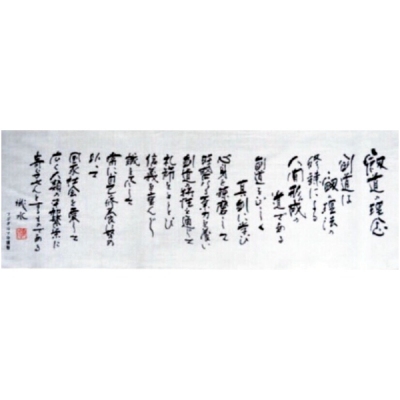 剣道の理念
剣道は
剣の理法の
修錬による
人間形成の
道である
剣道を正しく
真剣に学び
心身を錬磨して
旺盛なる気力を養い
剣道の特性を通じて
礼節をとうとび
信義を重んじ
誠を尽して
常に自己の修養に努め
以って
国家社会を愛して
広く人類の平和繁栄に
寄与せんとするものである